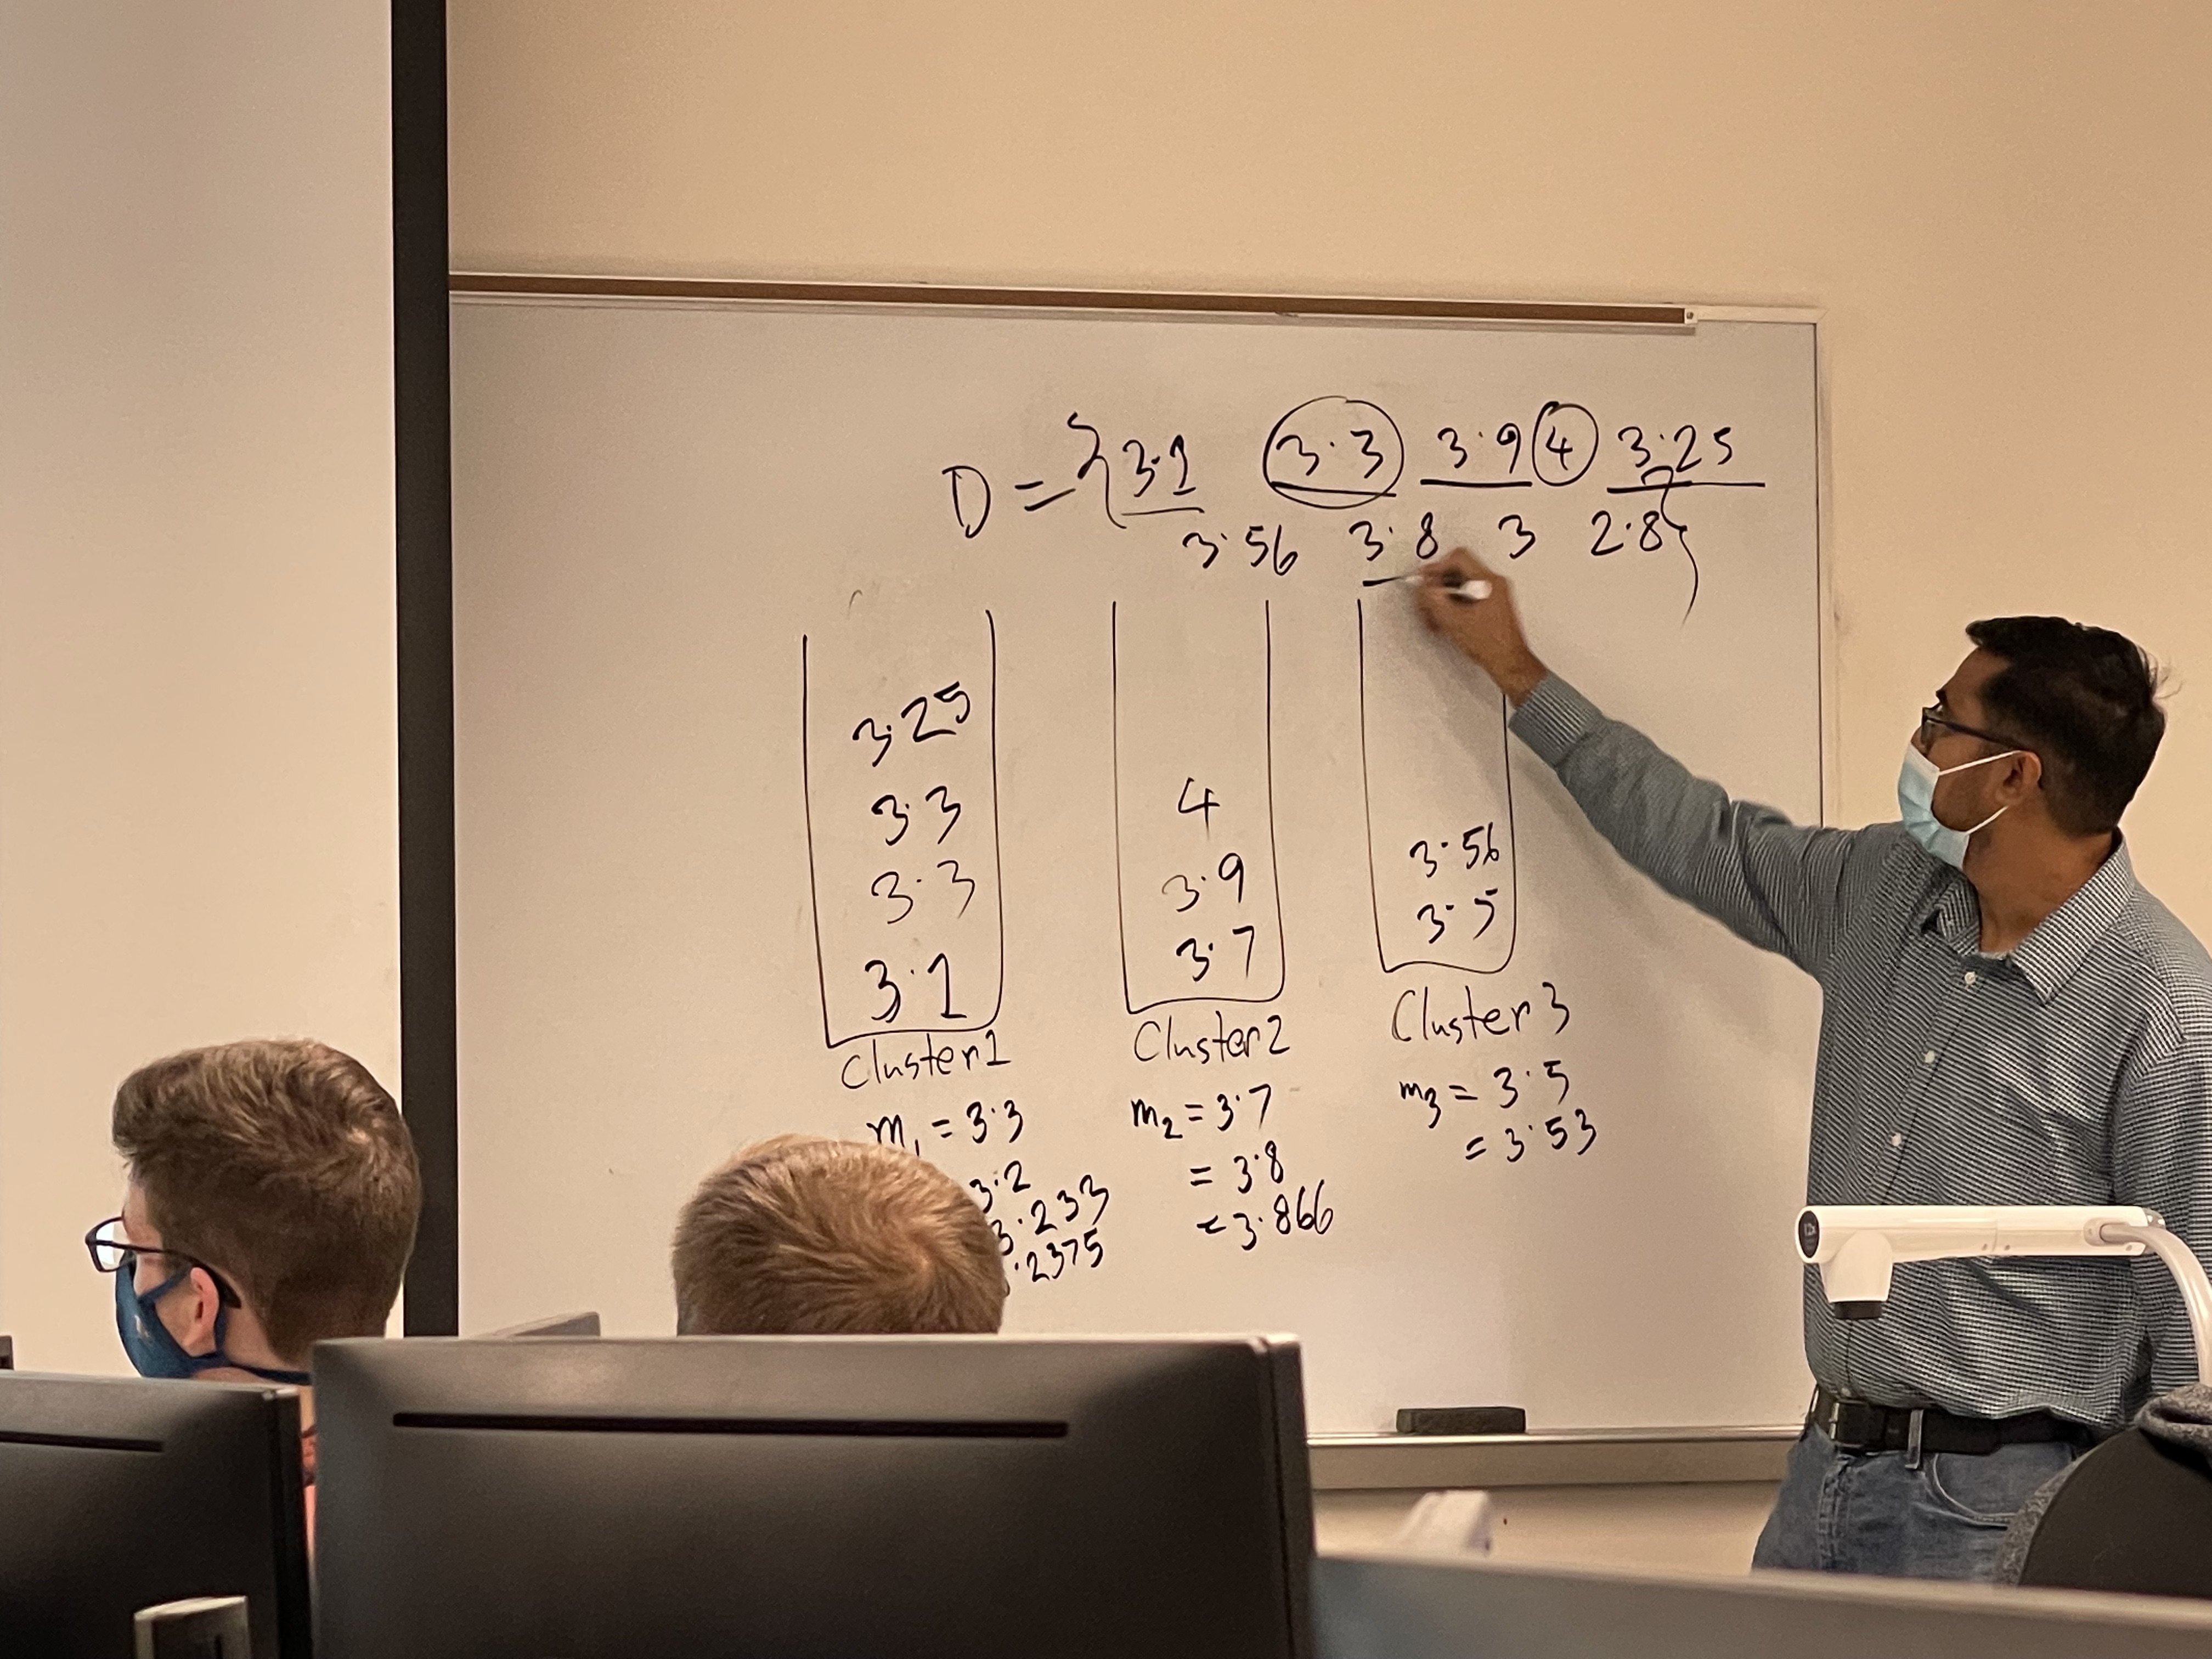 D = { 3.1 3.3 3.9 4 3.25
3.56 3.8 3 2.8 }
3.25
3.3
3.3
3.1
Cluster1
m1 = 3.3
3.2
3.233
.2375
4
3.9
3.7
Cluster2
m2 = 3.7
= 3.8
= 3.866
3.56
3.5
Cluster3
m3 = 3.5
= 3.53